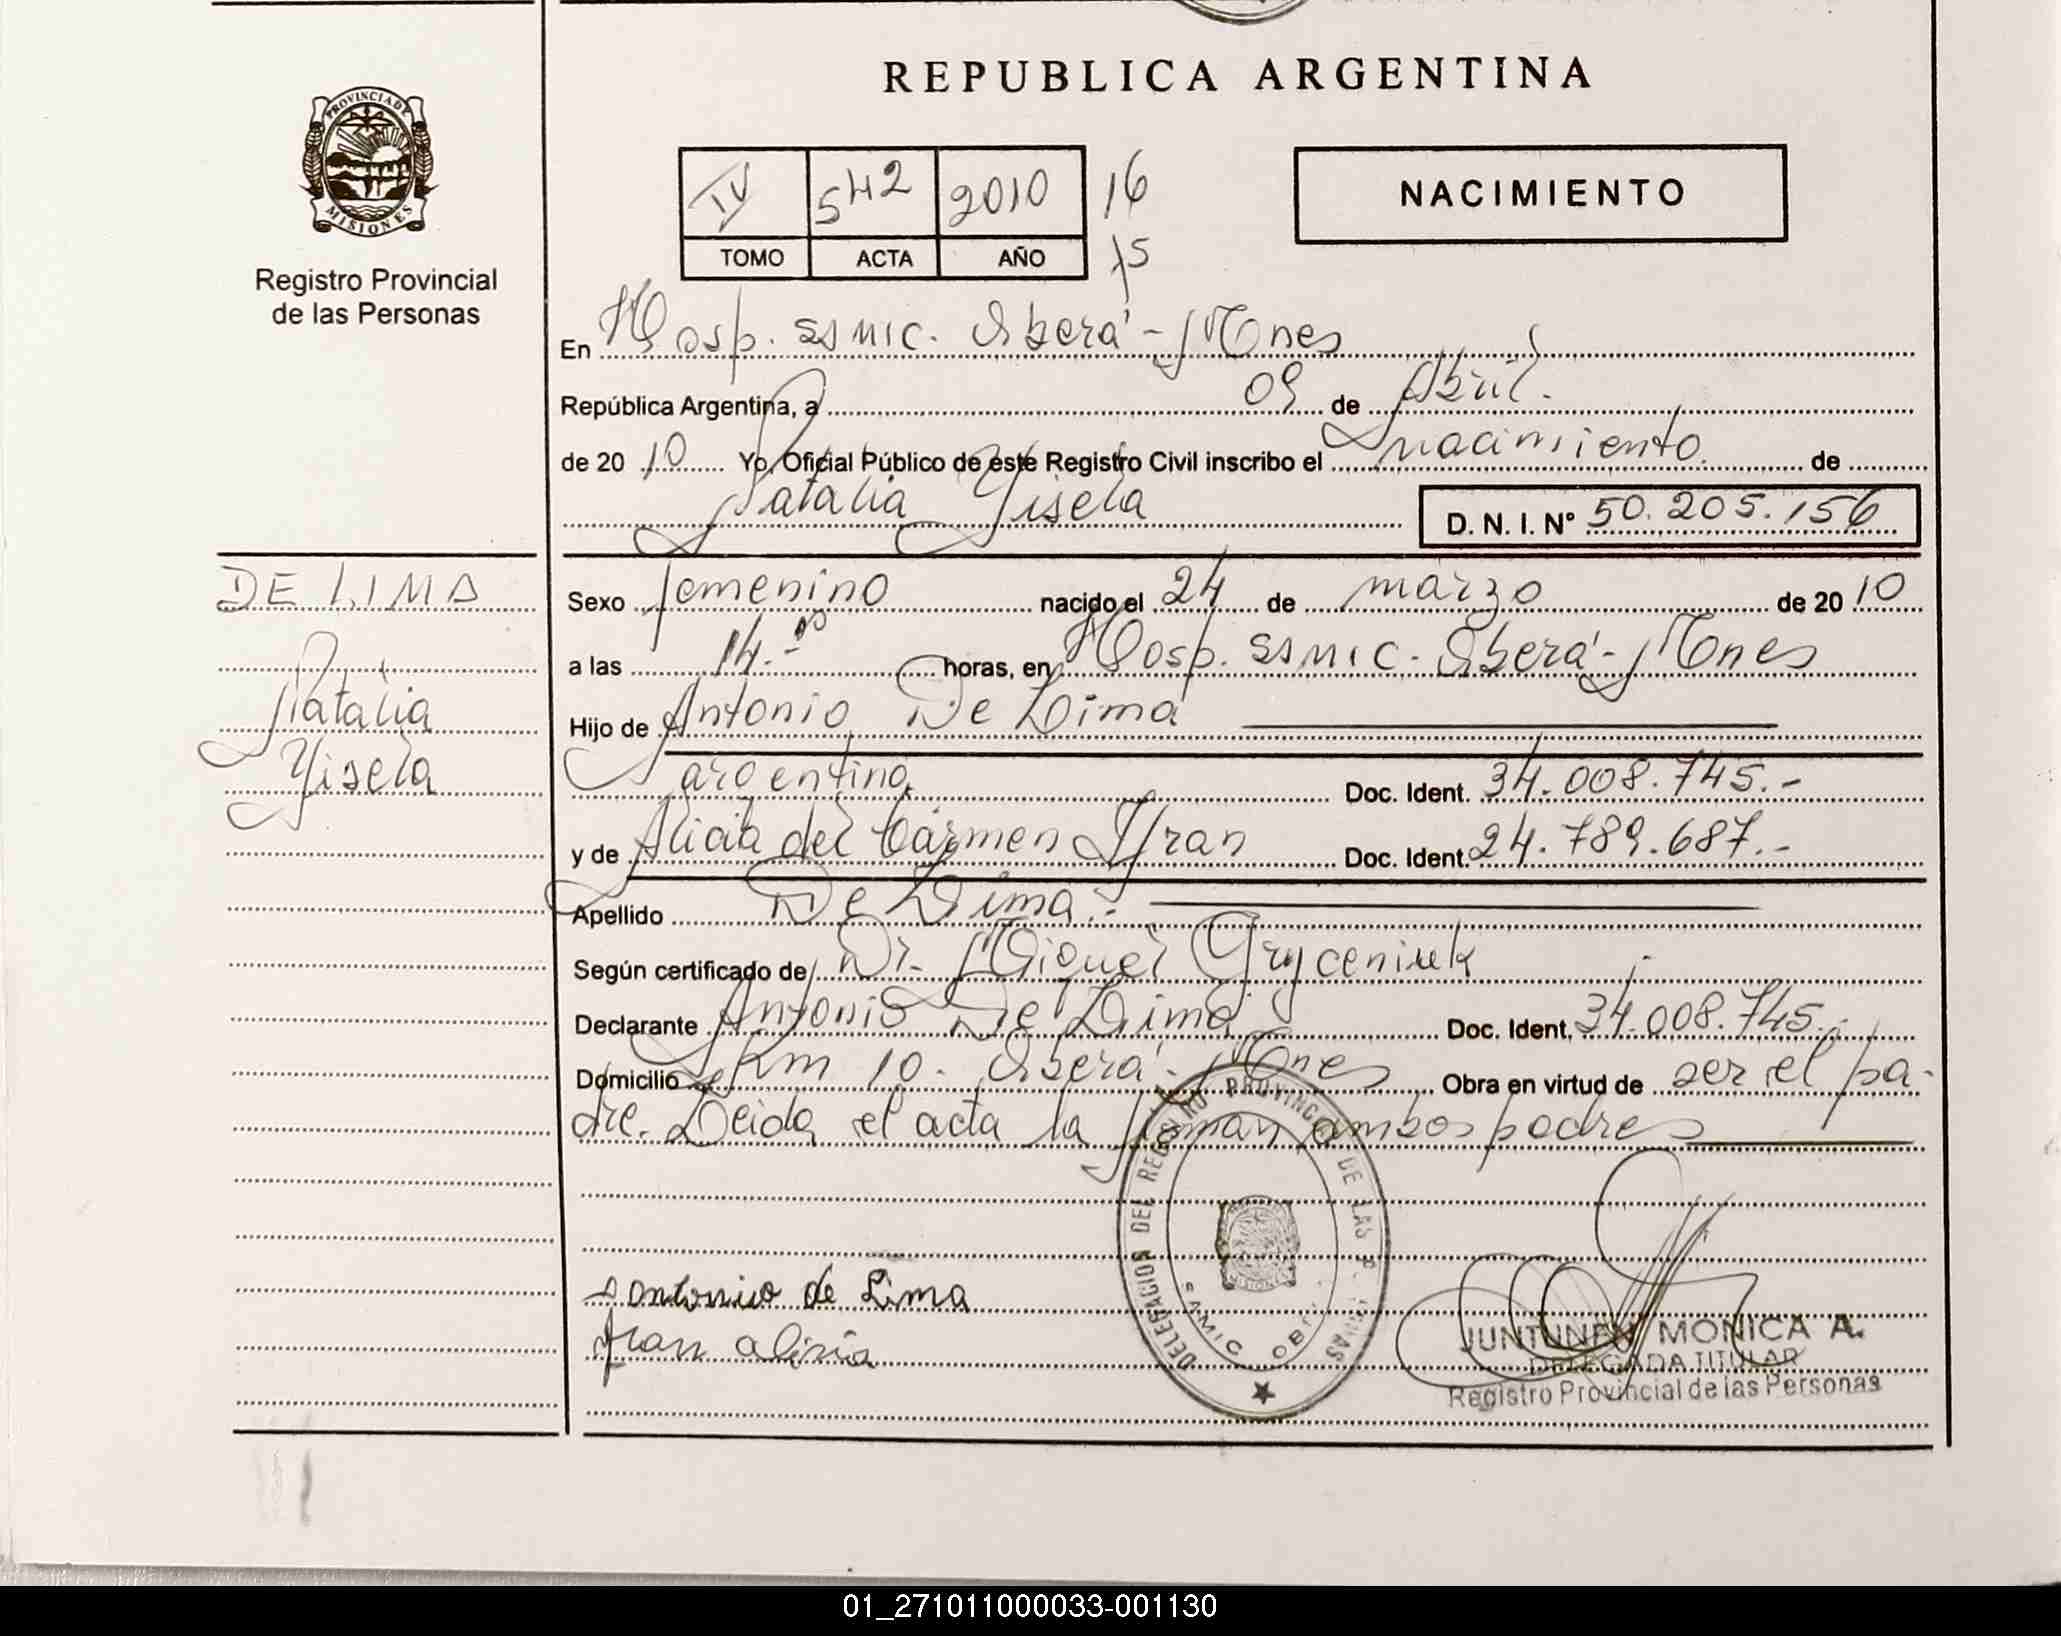 REPUBLICA ARGENTINA
PROVINCIA DE
MISIONES
Registro Provincial
de las Personas
IV 542 2010 16
TOMO ACTA AÑO 15
NACIMIENTO
En Hosp. SAMIC. Oberá - Mnes
República Argentina, a 09 de Abril.
de 20 10 Yo, Oficial Público de este Registro Civil inscribo el nacimiento de
Natalia Gisela
D. N. I. Nº 50.205.156
DE LIMA
Natalia
Gisela
Sexo femenino nacido el 24 de marzo de 20 10
a las 14.- horas, en Hosp. SAMIC. Oberá - Mnes
Hijo de Antonio De Lima
argentina Doc. Ident. 34.008.745.-
y de Alicia del Cármen Ifran Doc. Ident. 24.789.687.-
Apellido De Lima.-
Según certificado de Dr. Miguel Gryceniuk
Declarante Antonio De Lima Doc. Ident. 34.008.745.-
Domicilio Km 10. Oberá - Mnes Obra en virtud de ser el pa-
dre. Leida el acta la firman ambos padres
DELEGACION DEL REGISTRO PROVINCIAL DE LAS
SAMIC
★
Antonio de Lima
Ifran alicia
JUNTUNEN MONICA A.
DELEGADA TITULAR
Registro Provincial de las Personas
01_271011000033-001130